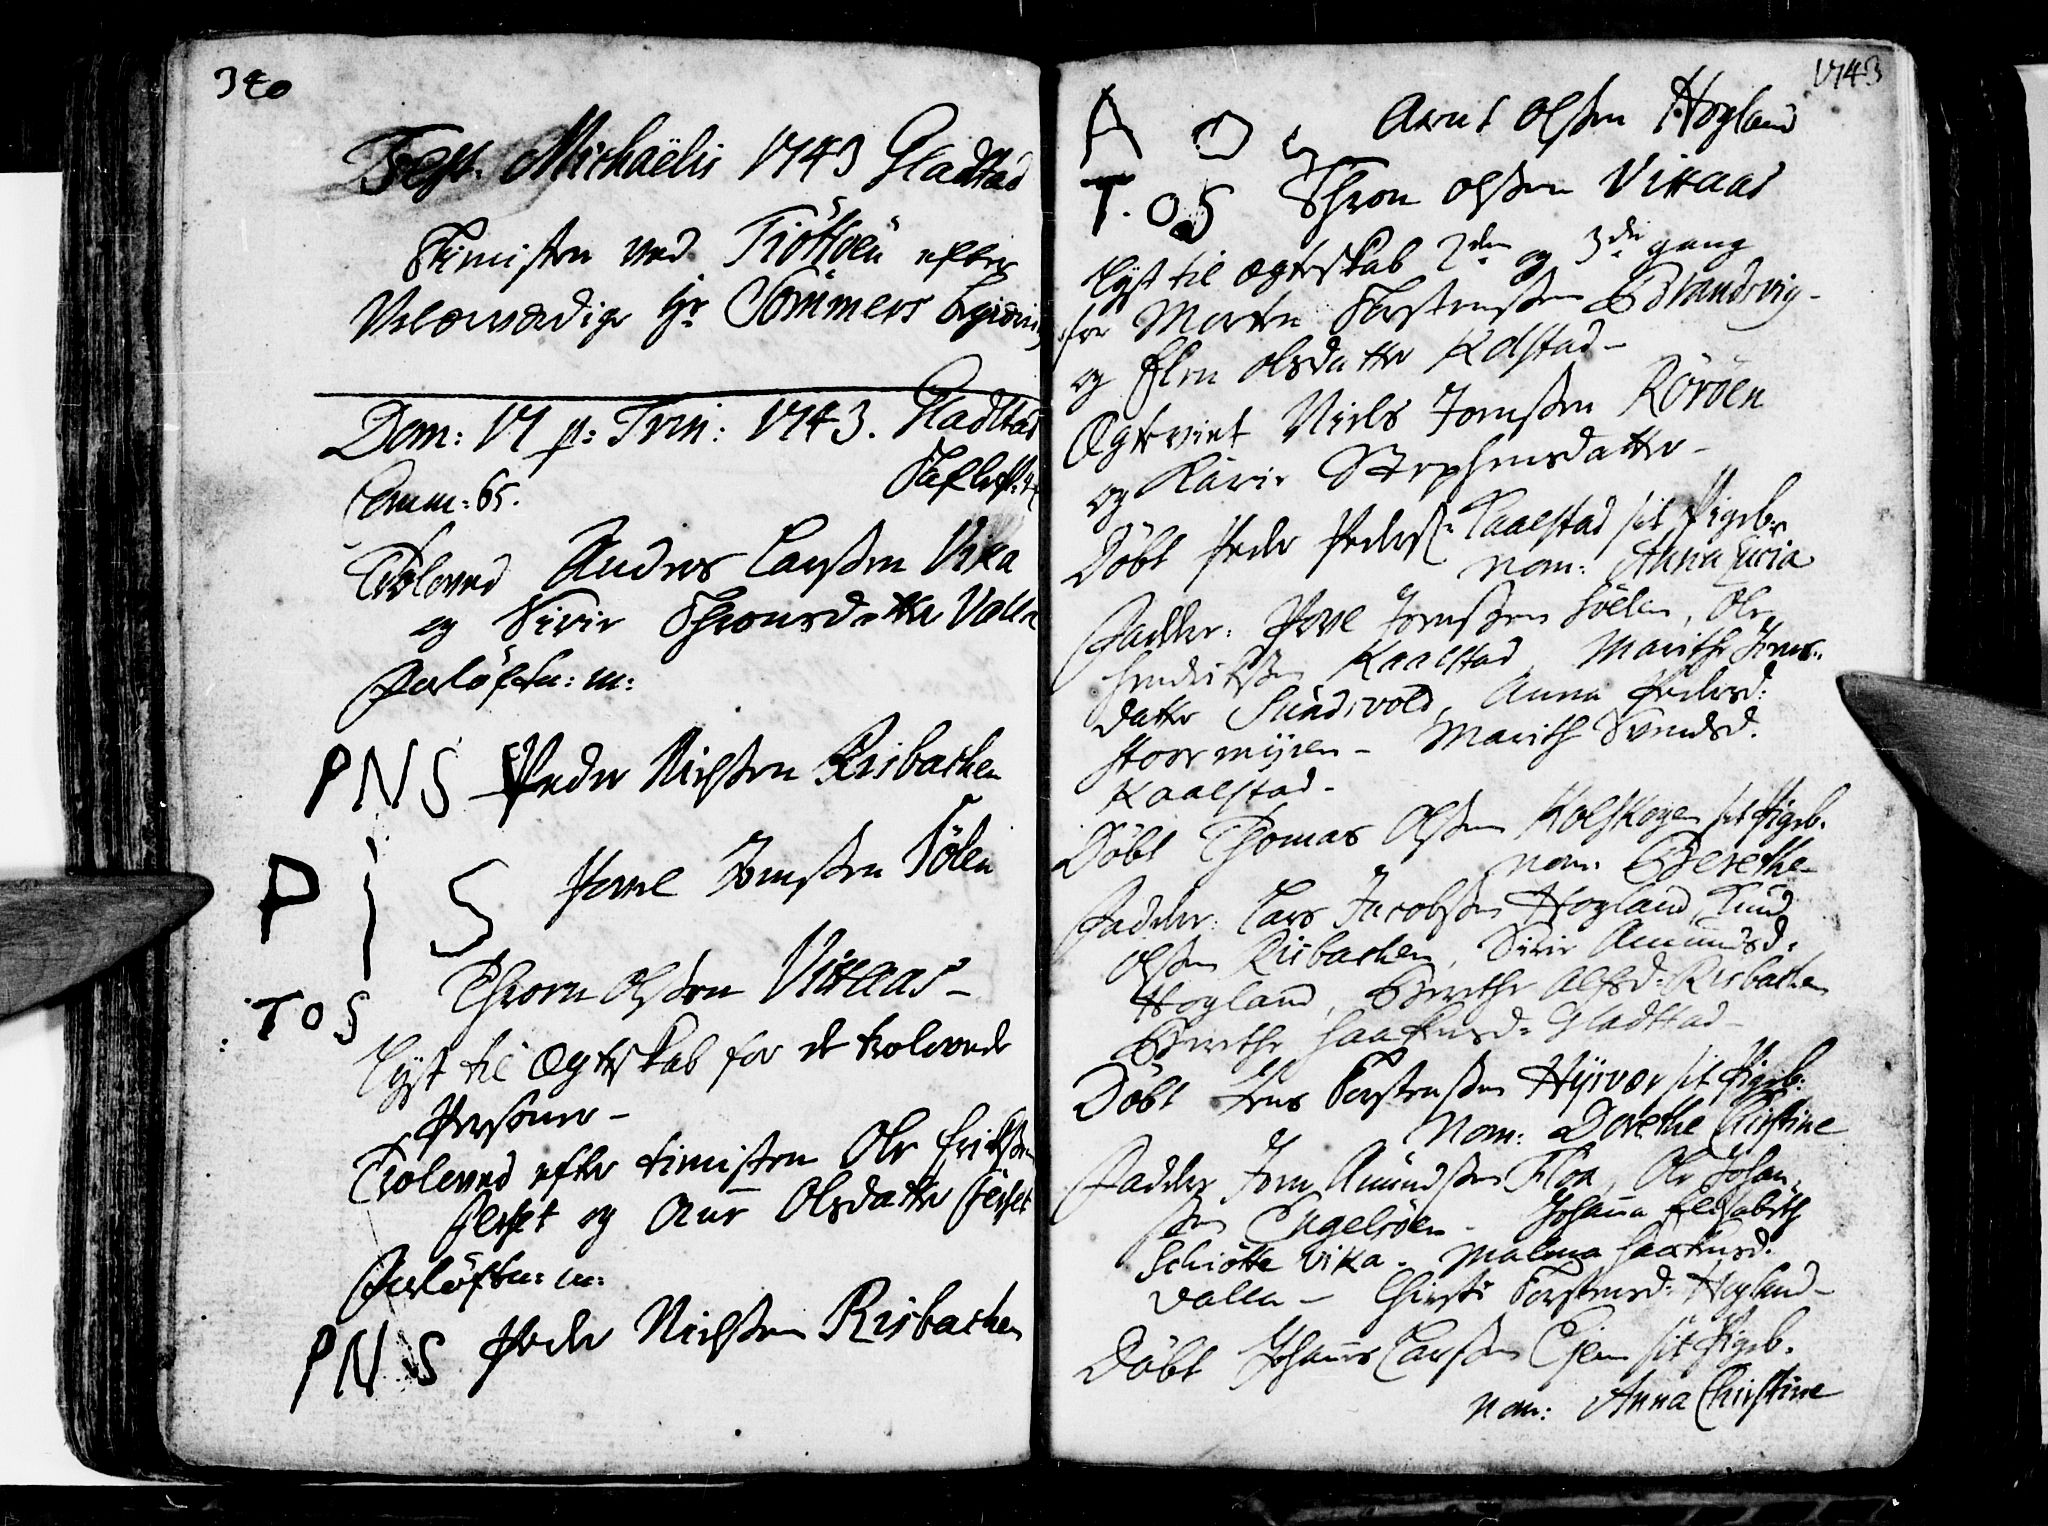 340
Fest. Michaëlis 1743 Gladstad
Fimisten ved Tiöttöen efter
Velærværdige Hr Sommers begiæring
Dom: 17 p: Trin: 1743. Gladstad
Comm: 65.
Troloved Anders Larssen Vika
og Sirie Thronsdatter Valen
Forlöftn: m:
PNS Peder Nielssen Risbacken
P I S Povel Jonssen Sölen
TOS Thron Olssen Vittaas -
Lyst til Ægteskab for de trolovede
Personer -
Troloved efter timisten Ole Erichssen
og Ane Olsdatter
Forlöftn: m:
PNS Peder Nielssen Risbacken
1743
A O S Arnt Olssen Hogland
T. O. S Thron Olssen Vittaas
Lyst til ægteskab 2den og 3die gang
for Morten Torstenssen Brandsvig -
og Elen Olsdatter Kolstad -
Ægteviet Niels Jonssen Röröen
og Karie Stephensdatter -
Döbt Peder Peders: Kaalstad sit Pigeb:
nom: Anna Lucia
Fadder: Povel Jonssen Sölen, Ole
Hendrichssen Kaalstad, Marithe Jons-
datter Sundsvold, Anna Pedersd:
Stormyren - Marith Svendsd.
Kaalstad -
Döbt Thomas Olssen Kolskogen sit Pigeb.
nom: Berethe
Fadder: Lars Jacobssen Hogland, Knud
Olssen Risbacken, Sirie Amundsd:
Hogland, Berethe Alfsd: Risbacken
Berethe Haakensd: Gladstad -
Döbt Jens Torstenssen Hysvær sit Pigeb:
Nom: Dorethe Christine
Fadder Jon Amundssen Floa, Ole Johan-
sen Engelsöen - Johanna Elisabeth
Schiötte Vika. Malena Haakensd.
Valen - Chirsti Torstensd: Hogland -
Döbt Johannes Larssen Ejen sit Pigeb.
nom: Anna Christine